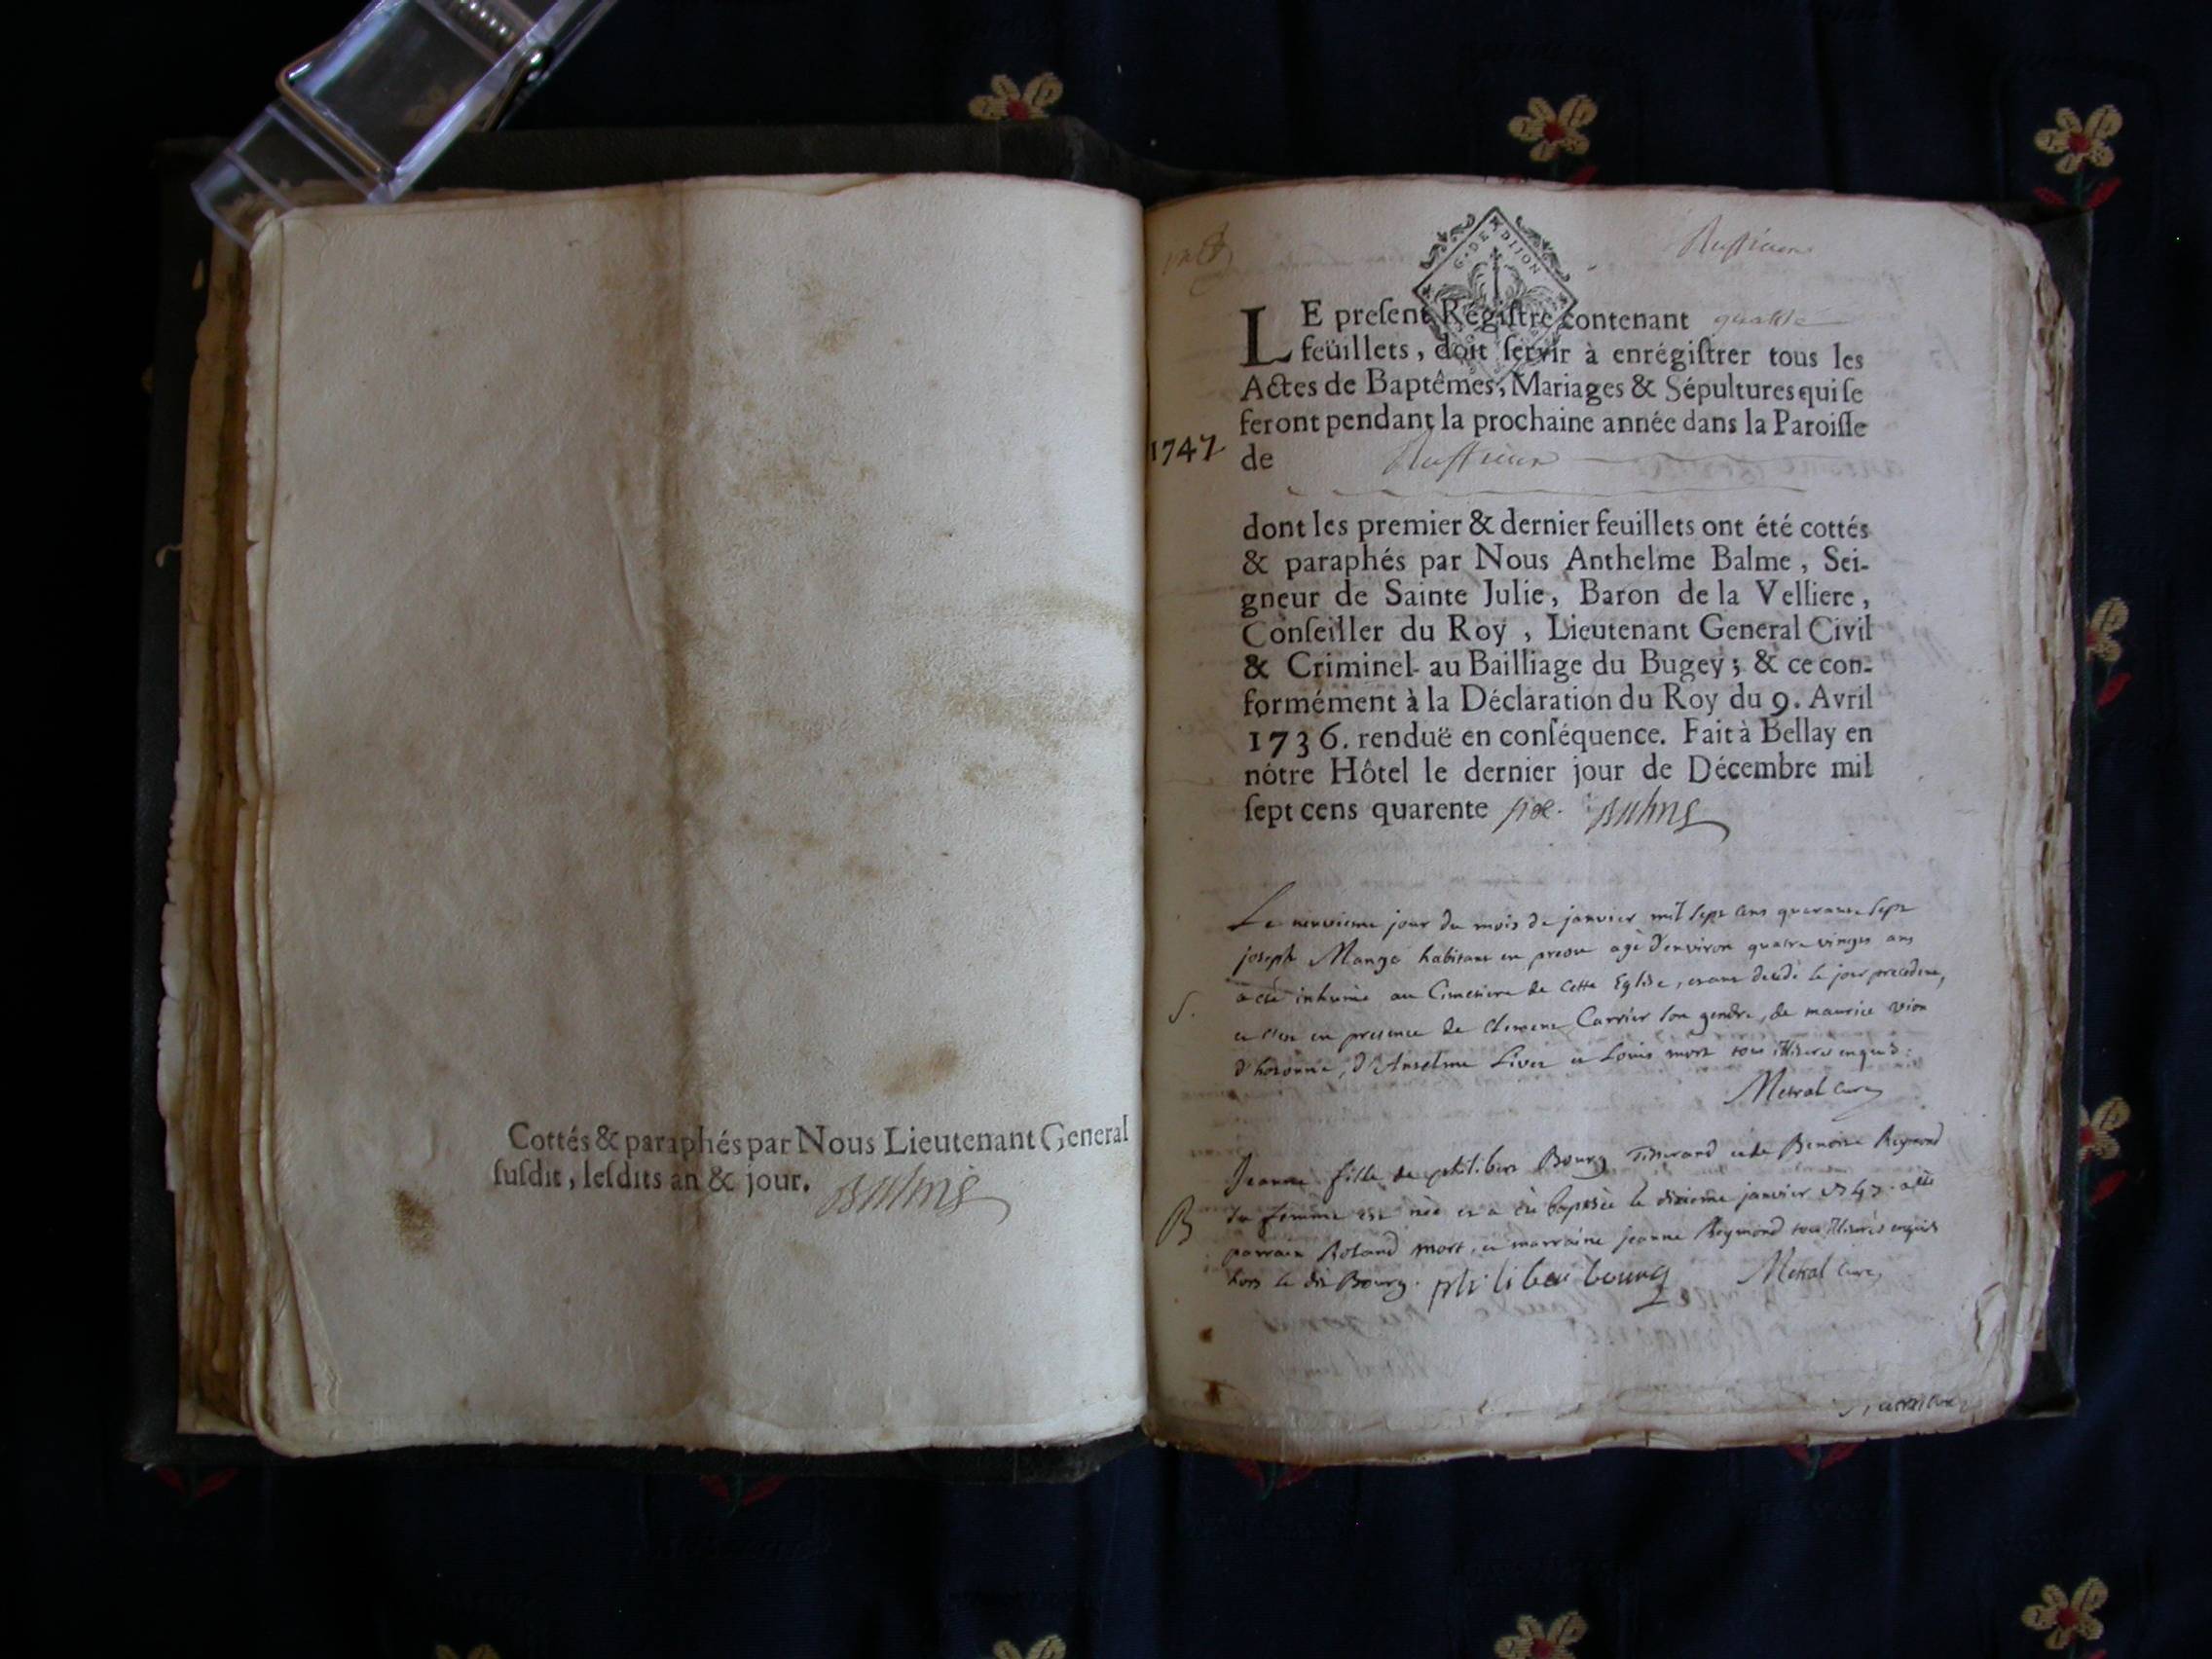 Cottés & paraphés par Nous Lieutenant General
susdit, lesdits an & jour. Balme
G. DE DIJON
Ruffieux
LE present Régistre contenant quattre
feüillets, doit servir à enrégistrer tous les
Actes de Baptêmes, Mariages & Sépultures qui se
feront pendant la prochaine année dans la Paroisse
1747
de Ruffieux
dont les premier & dernier feuillets ont été cottés
& paraphés par Nous Anthelme Balme, Sei-
gneur de Sainte Julie, Baron de la Velliere,
Conseiller du Roy, Lieutenant General Civil
& Criminel au Bailliage du Bugey; & ce con-
formément à la Déclaration du Roy du 9. Avril
1736. renduë en conséquence. Fait à Bellay en
nôtre Hôtel le dernier jour de Décembre mil
sept cens quarente six. Balme
Le neuvieme jour du mois de janvier mil sept cens quarante sept
joseph Mange habitant en preou agé d'environ quatre vingts ans
a été inhumé au Cimetiere de cette Eglise, etant decedé le jour precedent,
S.
et c'est en presence de Clement Carrier son gendre, de maurice vion
d'hotonne, d'Anselme Livet et Louis mort tous illiteres enquis.
Metral curé
Jeanne fille de philibert Bourg Tisserand et de Benoite Reymond
B
sa femme est née et a été baptisée le dixieme janvier 1747. a été
parrain Roland mort, et marraine jeanne Reymond tous illiterés enquis
hors le dit Bourg. philiber bourg Metral curé